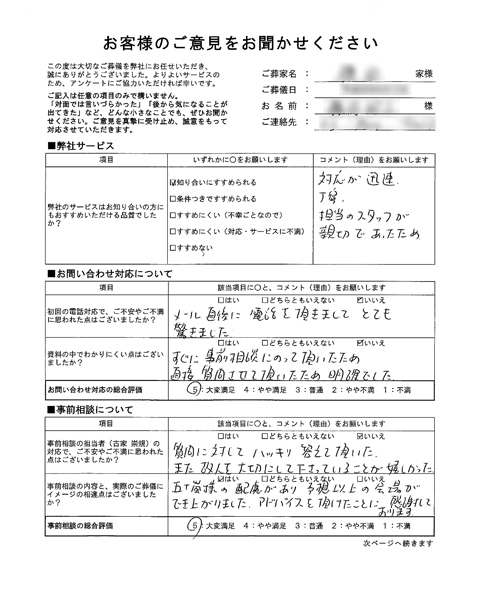 お客様のご意見をお聞かせください
この度は大切なご葬儀を弊社にお任せいただき、
誠にありがとうございました。よりよいサービスの
ため、アンケートにご協力いただければ幸いです。
ご記入は任意の項目のみで構いません。
「対面では言いづらかった」「後から気になることが
出てきた」など、どんな小さなことでも、ぜひお聞か
せください。ご意見を真摯に受け止め、誠意をもって
対応させていただきます。
ご葬家名 : 家様
ご葬儀日 :
お名前 : 様
ご連絡先 :
■弊社サービス
項目 いずれかに○をお願いします コメント（理由）をお願いします
弊社のサービスはお知り合いの方に
もおすすめいただける品質でした
か？
☑知り合いにすすめられる
□条件つきですすめられる
□すすめにくい（不幸ごとなので）
□すすめにくい（対応・サービスに不満）
□すすめない
対応が迅速、
丁寧、
担当のスタッフが
親切であったため
■お問い合わせ対応について
項目 該当項目に○と、コメント（理由）をお願いします
初回の電話対応で、ご不安やご不満
に思われた点はございましたか？
□はい □どちらともいえない ☑いいえ
メール直後に電話を頂きましてとても
驚きました
資料の中でわかりにくい点はござい
ましたか？
□はい □どちらともいえない ☑いいえ
すぐに事前相談にのって頂いたため
直接質問させて頂いたため明確でした。
お問い合わせ対応の総合評価 5：大変満足 4：やや満足 3：普通 2：やや不満 1：不満
■事前相談について
項目 該当項目に○と、コメント（理由）をお願いします
事前相談の担当者（古家 崇規）の
対応で、ご不安やご不満に思われた
点はございましたか？
□はい □どちらともいえない ☑いいえ
質問に対してハッキリ答えて頂いた。
また故人を大切にして下さっていることが嬉しかった
事前相談の内容と、実際のご葬儀に
イメージの相違点はございました
か？
☑はい □どちらともいえない □いいえ
五十嵐様の配慮があり予想以上の会場が
でき上がりました。アドバイスを頂けたことに感謝して
おります
事前相談の総合評価 5：大変満足 4：やや満足 3：普通 2：やや不満 1：不満
次ページへ続きます